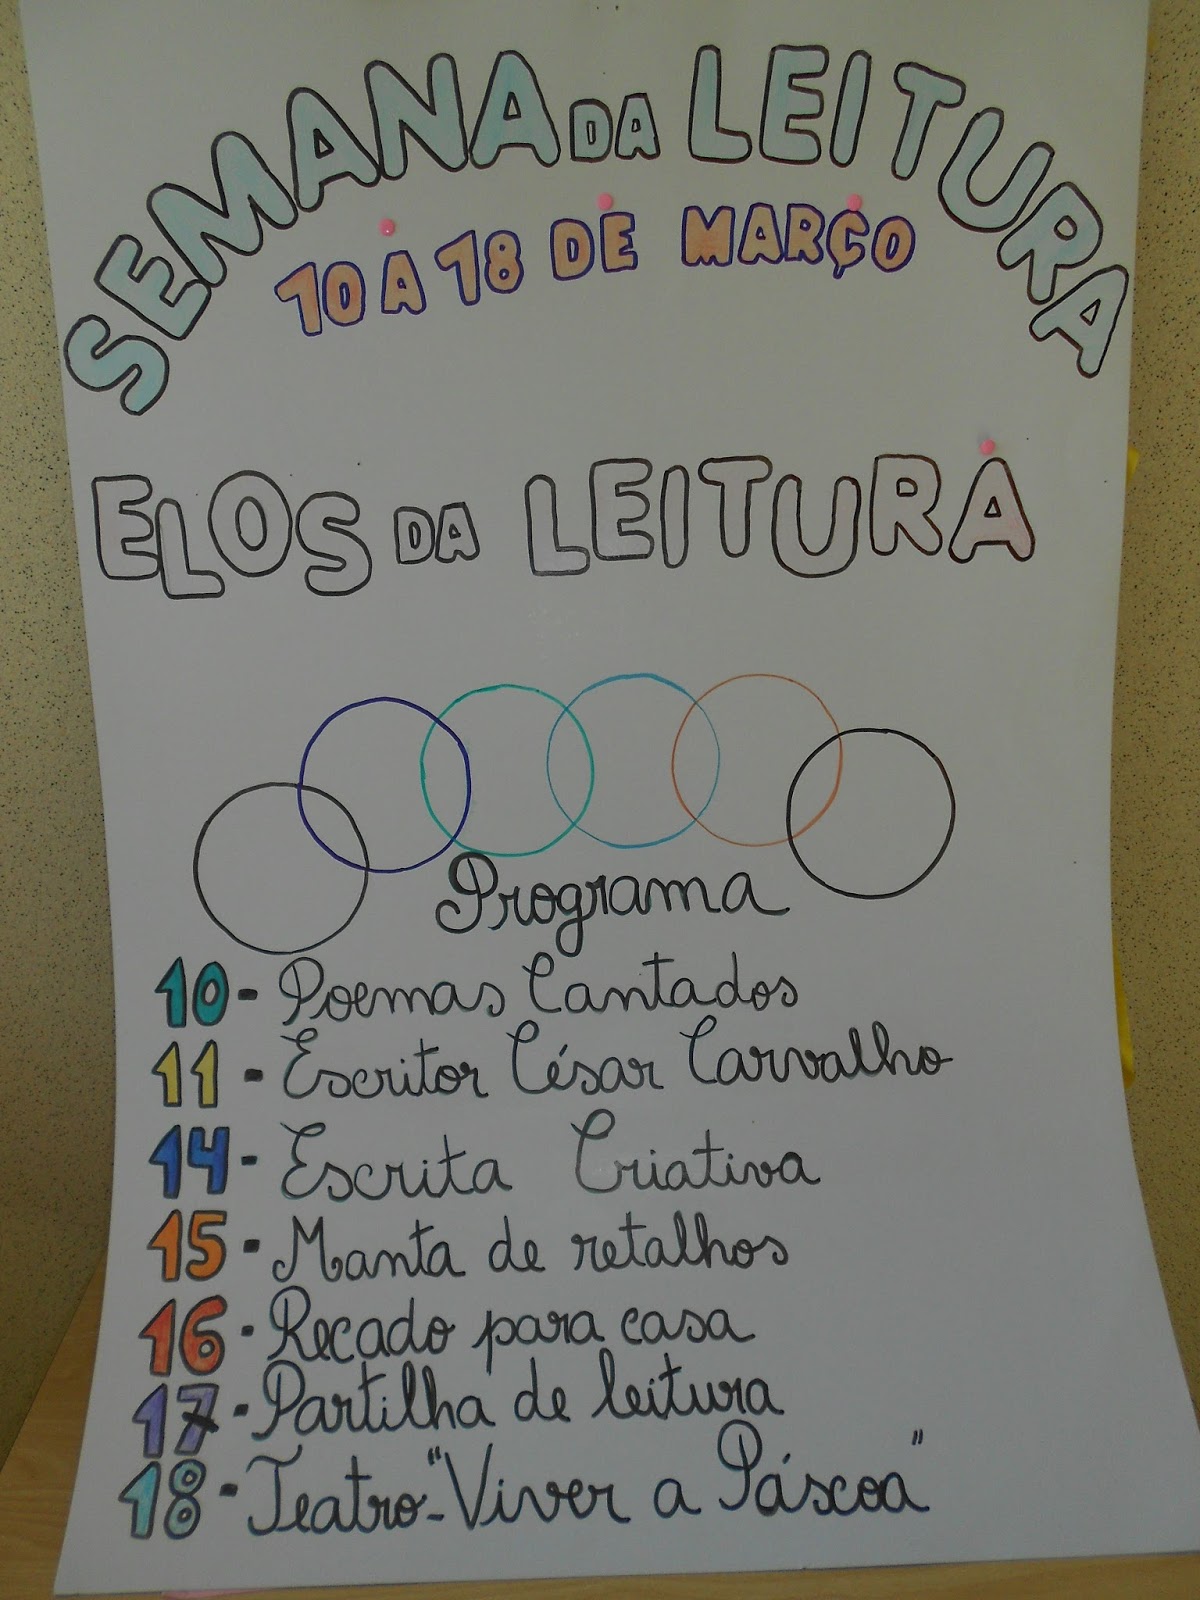 SEMANA DA LEITURA
10 A 18 DE MARÇO
ELOS DA LEITURA
Programa
10 - Poemas Cantados
11 - Escritor César Carvalho
14 - Escrita Criativa
15 - Manta de retalhos
16 - Recado para casa
17 - Partilha de leitura
18 - Teatro - "Viver a Páscoa"